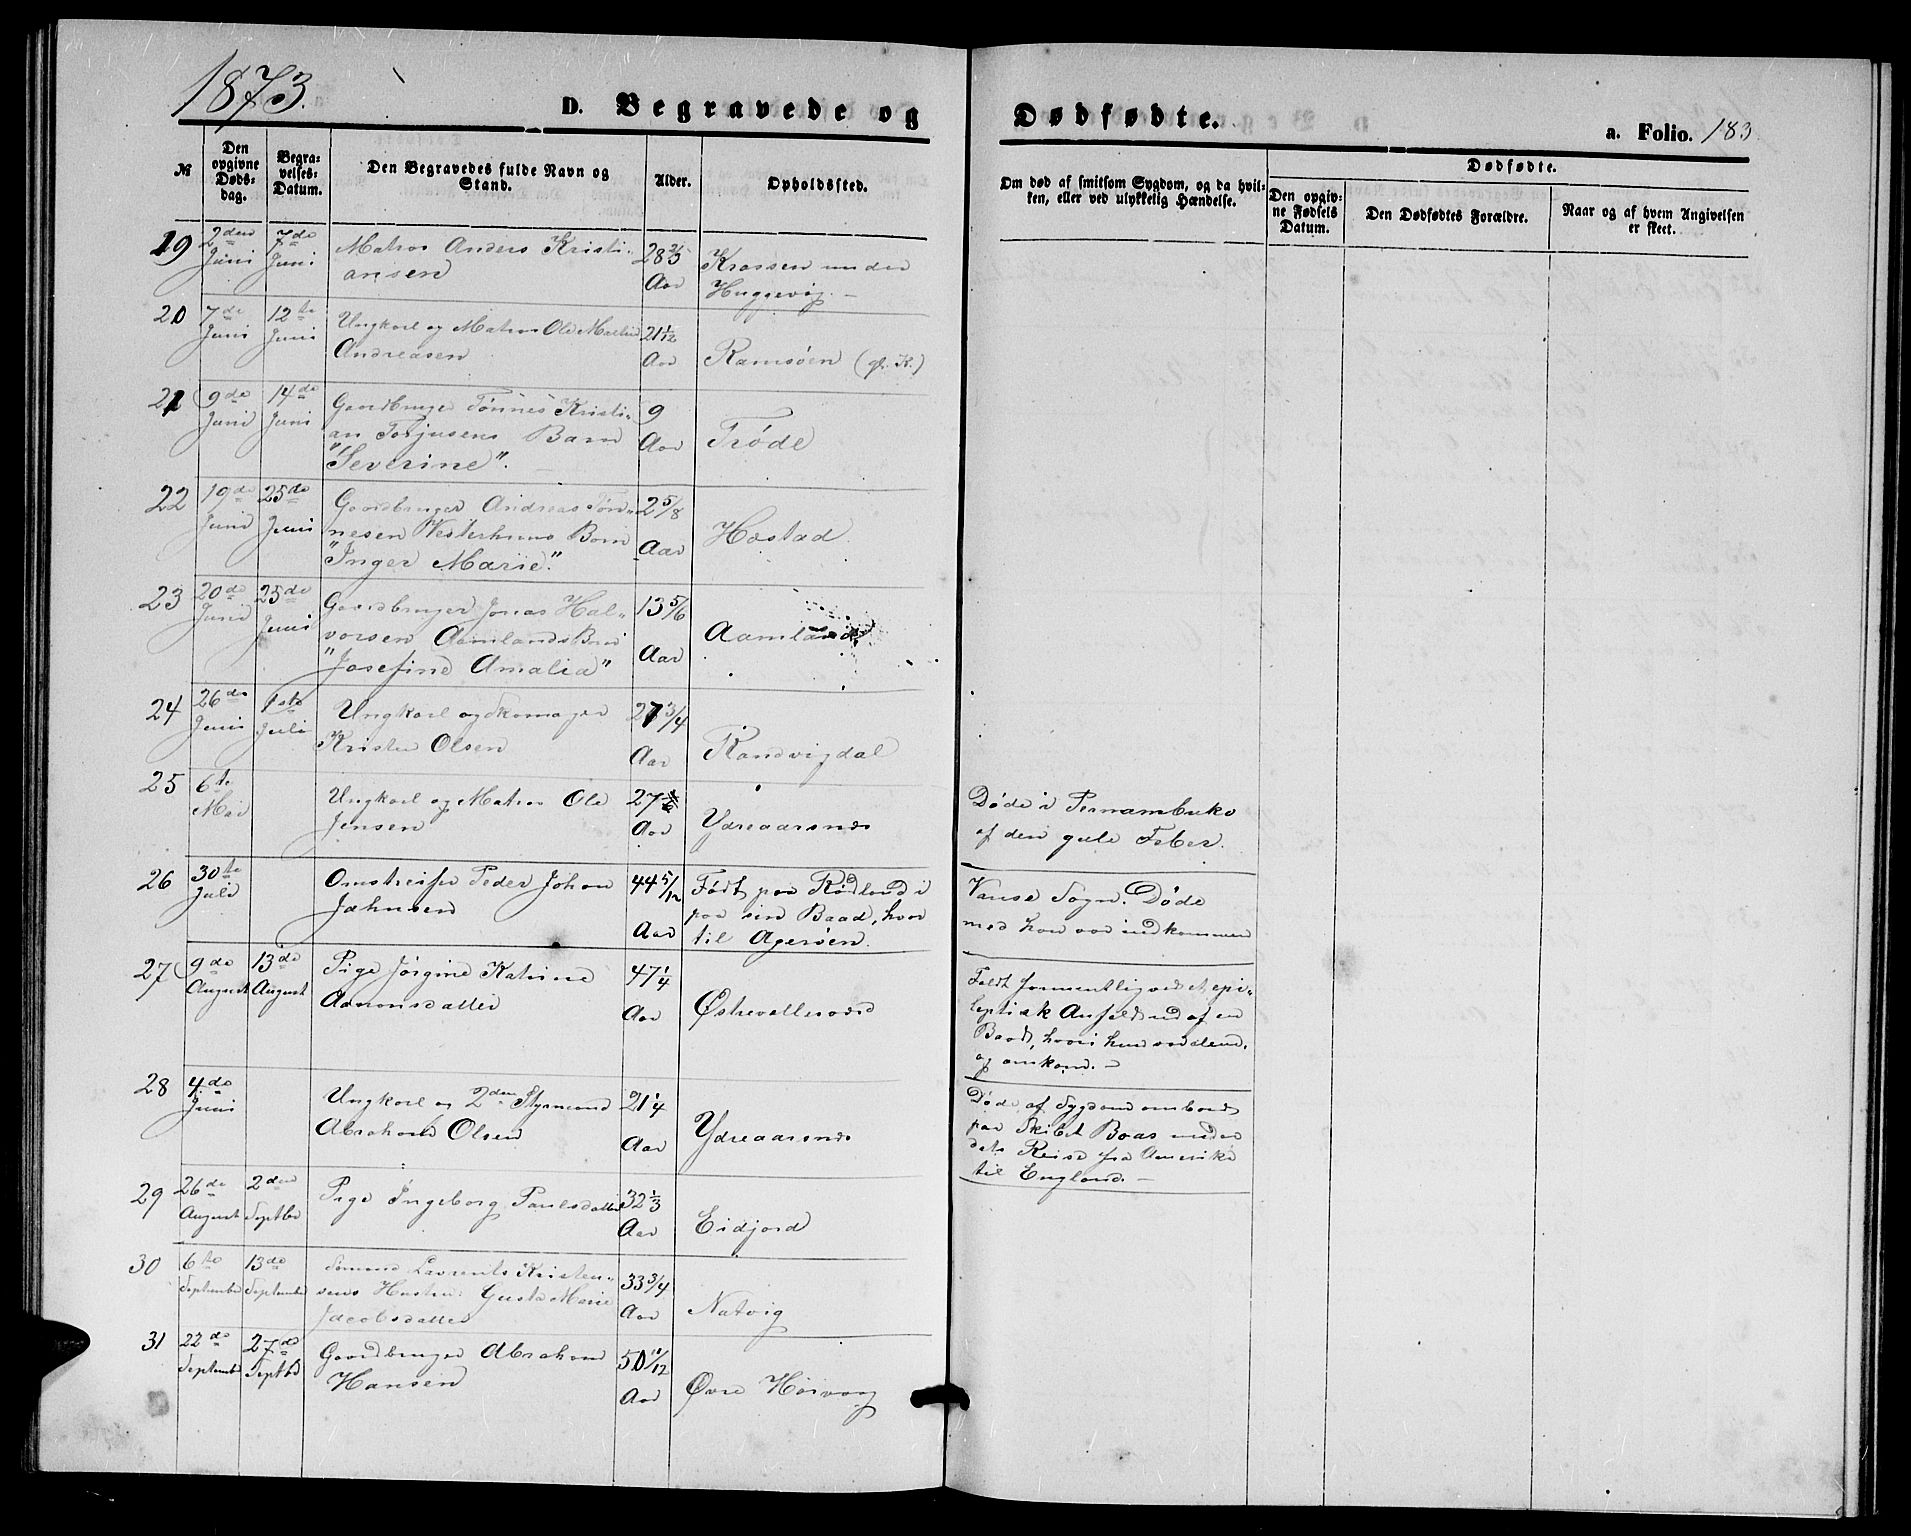 1873.
D. Begravede og
Dødfødte.
a. Folio. 183
№
Den opgivne Døds-dag.
Begra-velses-Datum.
Den Begravedes fulde Navn og Stand.
Alder.
Opholdssted.
Om død af smitsom Sygdom, og da hvil-
ken, eller ved ulykkelig Hændelse.
Dødfødte.
Den opgiv-ne Fødsels Datum.
Den Dødfødtes Forældre.
Naar og af hvem Angivelsen er skeet.
19 2den 7de Matros Anders Kristi- 28 2/3
Juni Juni ansen Aar Krossen under
20 7de 12te Ungkarl og Matros Ole Martin 21 1/12
Juni Juni Andreasen Aar Ramsøen (gl. K.)
21 9de 14de Gaardbruger Tønnes Kristi- 9
Juni Juni an Torjusens Barn Aar Trøde
"Severine".
22 19de 25de Gaardbruger Andreas Tøn- 2 5/8
Juni Juni nesen Vesterhuus Barn Aar Hæstad
"Inger Marie."
23 20de 25de Gaardbruger Jonas Hal- 13 5/6
Juni Juni vorsen Aamlands Barn Aar Aamland
"Josefine Amalia"
24 26de 1ste Ungkarl og Skomager 27 3/4
Juni Juli Krister Olsen Aar Randvigdal
25 6te Ungkarl og Matros Ole 27
Mai Jensen Aar Ydreaarsnes
Døde i Pernambuko
af den gule Feber.
26 30te Omstreifer Peder Johan 44 5/12 Født paa Rødland i
Juli Jahnsen Aar paa sin Baad, hvor
til Agerøen.
Vanse Sogn. Døde
med han var indkommen
27 9de 13de Pige Jørgine Katrine 47 1/4
August August Aanonsdatter Aar
Faldt formentlig ved et epi-
leptisk Anfald ud af en
Baad, hvori hun var alene,
og omkom. –
28 4de Ungkarl og 2den Styrmand 21 1/4
Juni Abraham Olsen Aar Ydreaarsnes
Døde af Sygdom ombord
paa Skibet Boas under
dets Reise fra Amerika
til England. –
29 26de 2den Pige Ingeborg Paulsdatter 32 1/3
August Septbr Aar Eidjord
30 6te 13de Sømand Lavrents Kristen- 33 3/4
September September sens Hustru Gusta Marie Aar Natvig
Jacobsdatter
31 22de 27de Gaardbruger Abraham 50 11/12
September Septbr Hansen Aar Øvre Høivaag